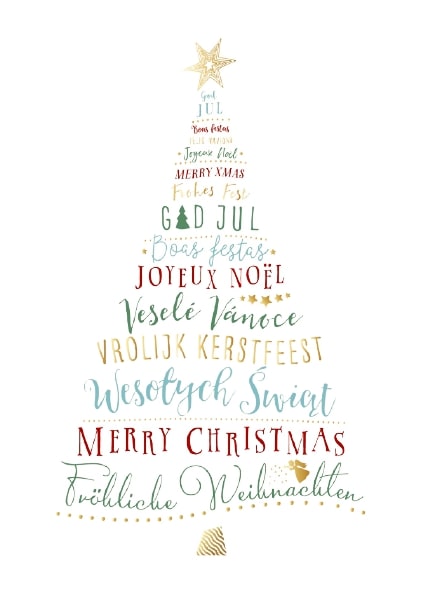 God
JUL
Boas festas
FELIZ NAVIDAD
Joyeux Noël
MERRY XMAS
Frohes Fest
G D JUL
Boas festas
JOYEUX NOËL
Veselé Vánoce
VROLIJK KERSTFEEST
Wesołych Świąt
MERRY CHRISTMAS
Fröhliche Weihnachten